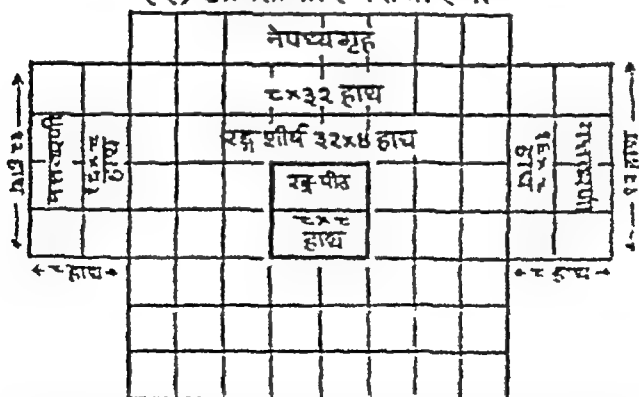 नेपथ्यगृह
८×३२ हाथ
रङ्ग शीर्ष ३२×४ हाथ
रङ्ग-पीठ
८×८
हाथ
मत्तवारणी
१६×८
हाथ
१६×८
हाथ
मत्तवारणी
←८ हाथ→
←८ हाथ→